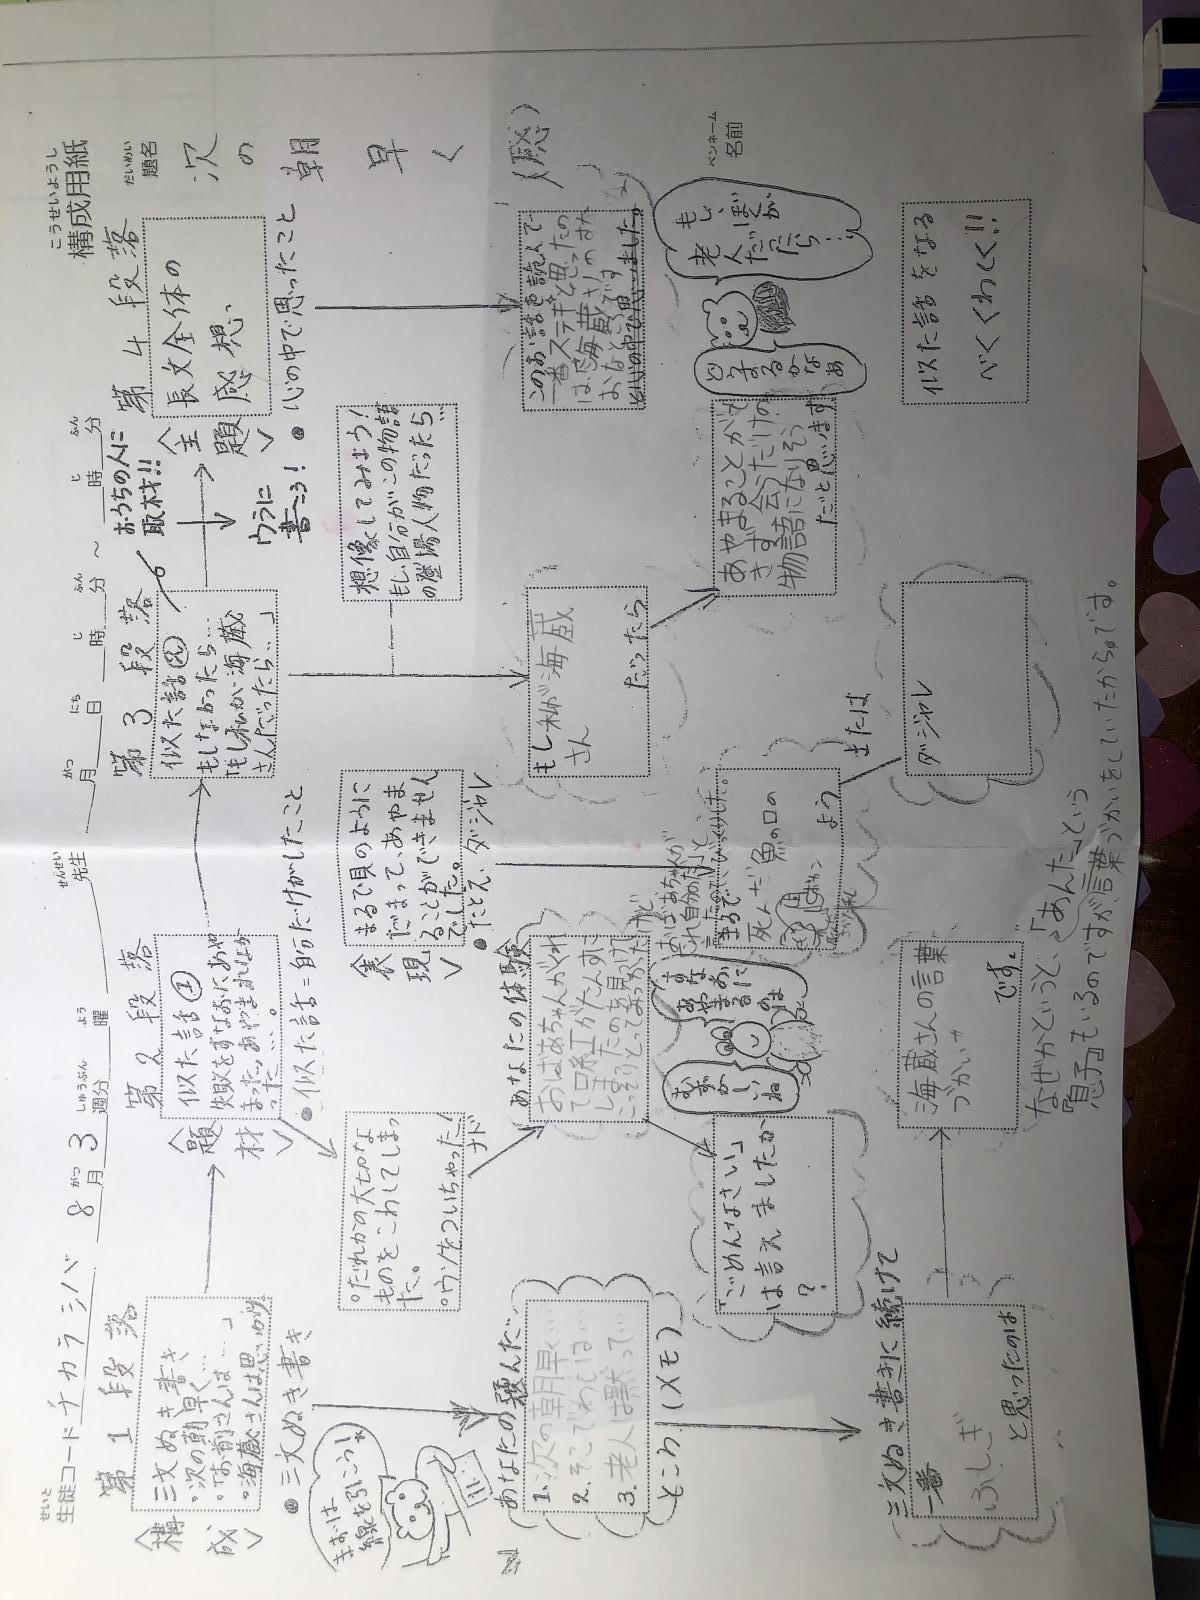 こうせいようし
構成用紙
せいと
生徒コード チカラシバ 8月3週分 曜 先生 月 日 時 分 ~ 時 分
だいめい
題名
次の朝早く(感)
ペンネーム
名前
第1段落
<構成>
三文ぬき書き
・次の朝早く…
・「お前さんは……」
・海蔵さんは思いがけ
●三文ぬき書き
まずは
線を引こう!
あなたの選んだ
1.次の朝早く…
2.そこでわしは…
3.老人は黙って…
ところ(メモ)
三文ぬき書きに続けて
一番
ふしぎ
と思ったのは
海蔵さんの言葉
づかい
です。
なぜかというと、「あんた」という
「息子」もいるのですが、言葉づかいをしていたから。です。
第2段落
<題材>
似た話①
失敗をすなおにあや
まった。あやまれなか
った…。
●似た話=自分だけがしたこと
・だれかの大切な
ものをこわしてしまっ
た。
・ウソをついちゃった!
ナド
あなたの体験
おばあちゃんがくれ
て口紅がたんすに
しまったのを見つけ
こっそりとってあったけど
おばあちゃんが
「ごめんなさい」
は言えましたか
?
すなおに
あやまる
のは
むずか
しいね
<表現>
まるで貝のように
だまって、あやま
ることができません
でした。
●たとえ、ダジャレ
まるで
死んだ魚の口の
よう
または
ダジャレ
第3段落
似た話②
もしなかったら…
「もし私が海蔵
さんだったら…」
おうちの人に
取材!!
ウラに
書こう!
想像してみよう!
もし、自分がこの物語
の登場人物だったら
もし私が海蔵
さん
だったら
あやまることがで
きず会うだけの
物語になりそう
だと思います
もし、ぼくが
老人
だったら…
どうするかなあ
似た話をなる
べくくわしく!!
第4段落
<主題>
長文全体の
感想
●心の中で思ったこと
このお話を読んで
一番ステキと思ったの
は、海蔵さんのすな
おなところです
と心の中で思いました。